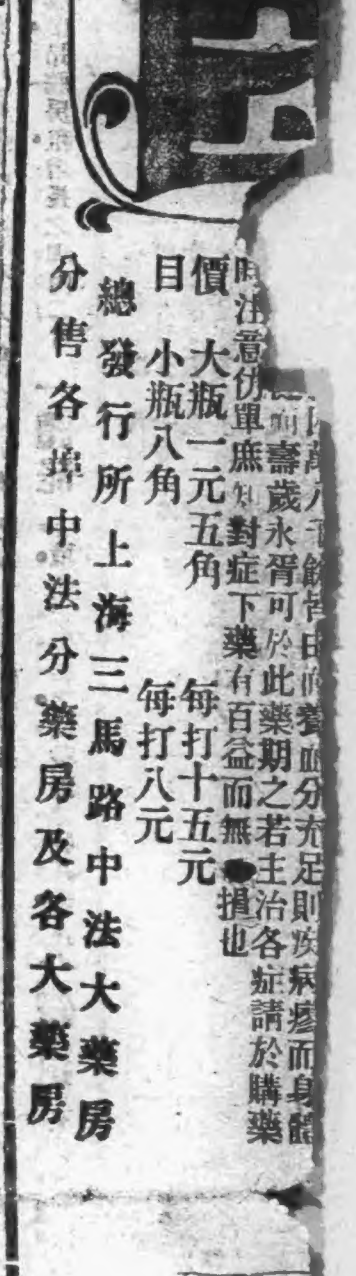 萬八千餘皆由血養血分充足則疾病瘳而身體
而壽歲永胥可於此藥期之若主治各症請於購藥
時注意仿單庶知對症下藥有百益而無損也
價 大瓶一元五角 每打十五元
目 小瓶八角 每打八元
總發行所上海三馬路中法大藥房
分售各埠中法分藥房及各大藥房